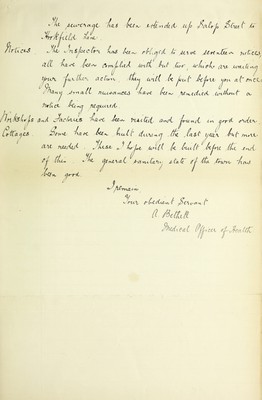 The sewerage has been extended up Salop Street to
Kirkfield Lane
Notices. The Inspector has been obliged to serve seventeen notices
all have been complied with but two, which are awaiting
your further action they will be put before you at once
Many small nuisances have been remedied without a
notice being required
Workshops and Factories have been visited and found in good order
Cottages. Some have been built during the last year but more
are needed. These I hope will be built before the end
of this. The general sanitary state of the town has
been good.
I remain
Your obedient Servant
A Bethell
Medical Officer of Health